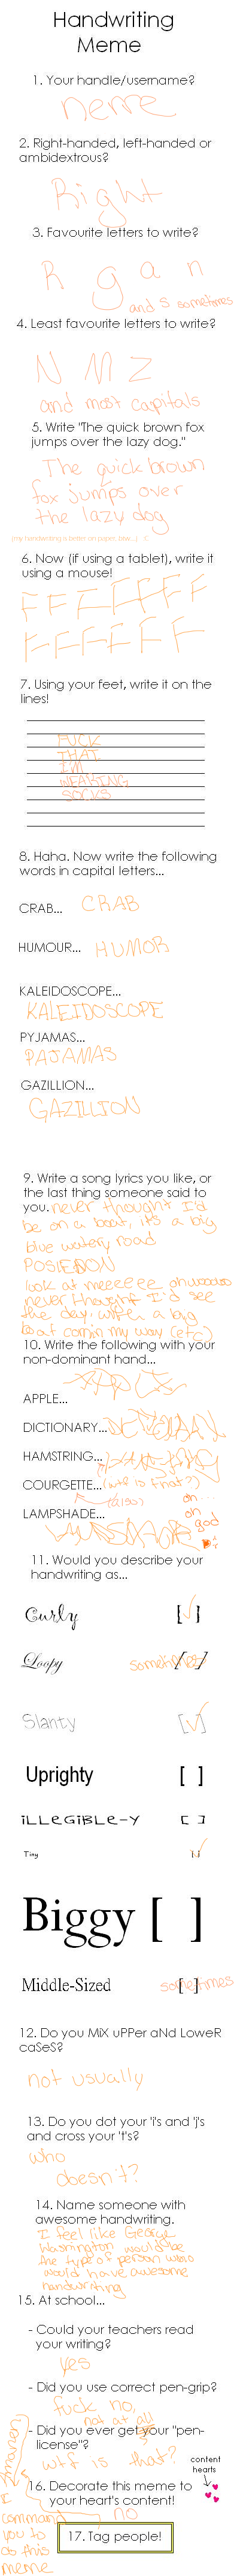 Handwriting
Meme
1. Your handle/username?
nerre
2. Right-handed, left-handed or
ambidextrous?
Right
3. Favourite letters to write?
R g a n
and s sometimes
4. Least favourite letters to write?
N M Z
and most capitals
5. Write "The quick brown fox
jumps over the lazy dog."
The quick brown
fox jumps over
the lazy dog
(my handwriting is better on paper, btw...)
6. Now (if using a tablet), write it
using a mouse!
F F F F F F F
F F F F F F
7. Using your feet, write it on the
lines!
FUCK
THAT
I'M
WEARING
SOCKS
8. Haha. Now write the following
words in capital letters...
CRAB... CRAB
HUMOUR... HUMOR
KALEIDOSCOPE...
KALEIDOSCOPE
PYJAMAS...
PAJAMAS
GAZILLION...
GAZILLION
9. Write a song lyrics you like, or
the last thing someone said to
you. never thought I'd
be on a boat, it's a big
blue watery road
POSIEDON
look at meeeeee
never thought I'd see
the day with a big
boat comin my way (etc)
10. Write the following with your
non-dominant hand...
APPLE...
DICTIONARY...
HAMSTRING...
COURGETTE... (wtf is that?)
(also) oh...
LAMPSHADE... oh god
11. Would you describe your
handwriting as...
Curly [✓]
Loopy sometimes [ ]
Slanty [✓]
Uprighty [ ]
iLLEGiBLE-Y [ ]
Tiny [✓]
Biggy [ ]
Middle-Sized sometimes [ ]
12. Do you MiX uPPer aNd LoweR
caSeS?
not usually
13. Do you dot your 'i's and 'j's
and cross your 't's?
who
doesn't?
14. Name someone with
awesome handwriting.
I feel like George
Washington would be
the type of person who
would have awesome
handwriting
15. At school...
- Could your teachers read
your writing?
yes
- Did you use correct pen-grip?
fuck no,
not at all
- Did you ever get your "pen-
license"?
wtf is that?
no
content
hearts
16. Decorate this meme to
your heart's content!
17. Tag people!
I
command
you to
do this
meme